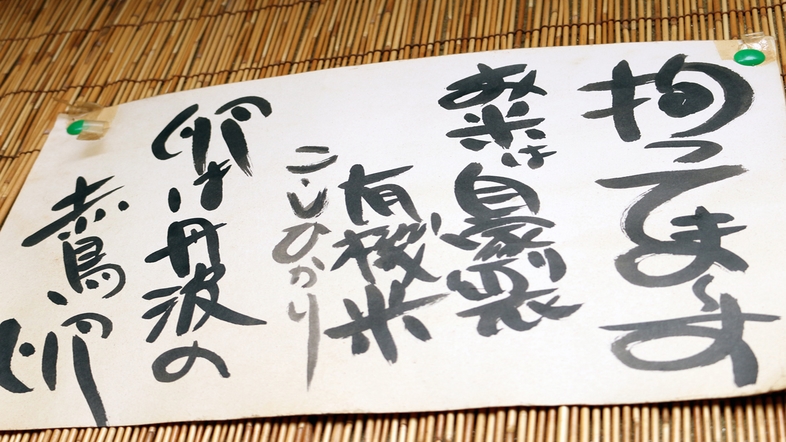 拘ってま〜す
お米は自家製
有機米
こしひかり
卵は丹波の
赤鳥卵